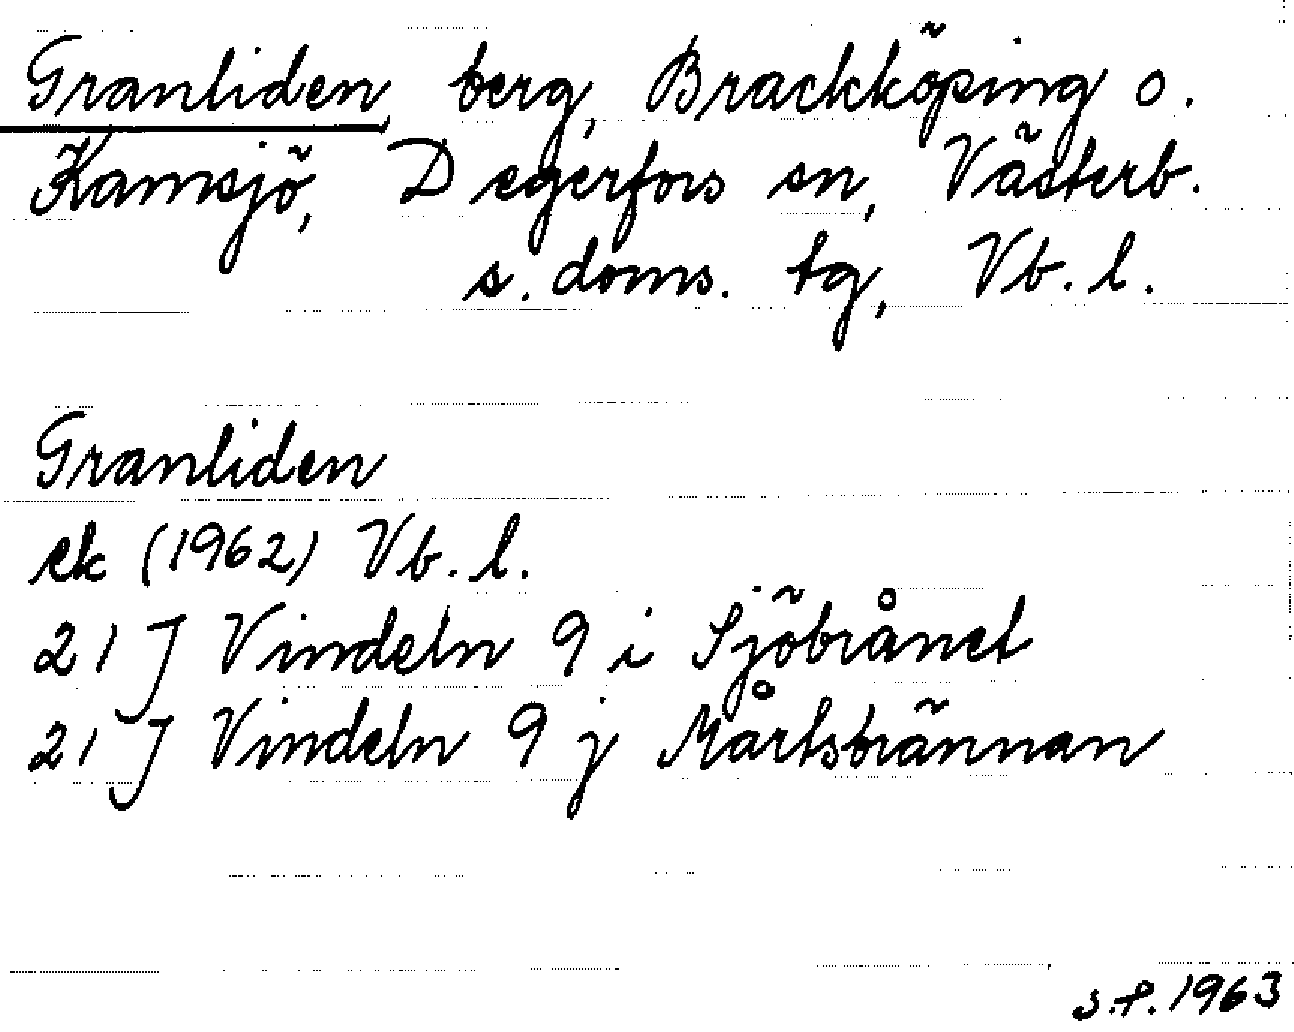 Granliden, berg, Brackköping o.
Kamsjö, Degerfors sn, Västerb.
s. doms. tg, Vb. l.
Granliden
ek (1962) Vb. l.
21 J Vindeln 9 i Sjöbrånet
21 J Vindeln 9 j Mårtsbrännan
s.f. 1963